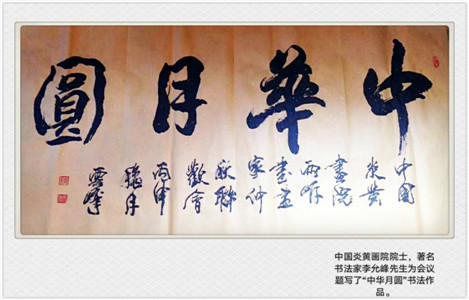 中華月圓
中國
炎黄
畫院
两岸
書畫
家仲
秋聯
歡會
丙申
月
雲峰
中国炎黄画院院士，著名
书法家李允峰先生为会议
题写了“中华月圆”书法作
品。